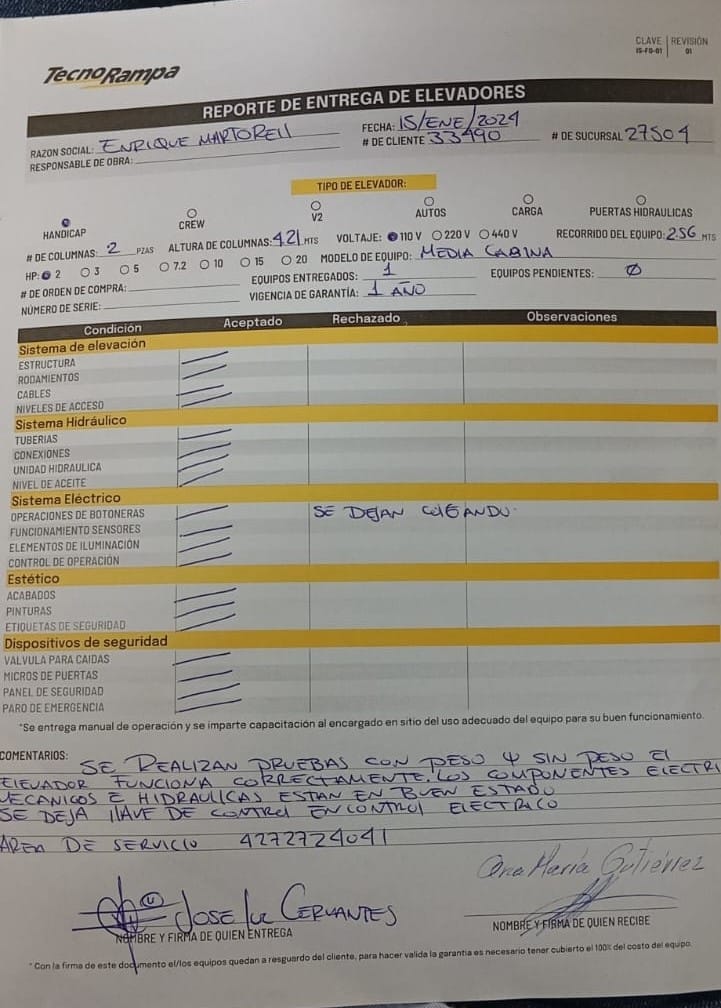 CLAVE | REVISIÓN
IS-FO-01 | 01
TECNORAMPA
REPORTE DE ENTREGA DE ELEVADORES
RAZON SOCIAL: ENRIQUE MARTORELL
FECHA: 15/ENE/2024
RESPONSABLE DE OBRA:
# DE CLIENTE 33490
# DE SUCURSAL 27504
TIPO DE ELEVADOR:
HANDICAP CREW V2 AUTOS CARGA PUERTAS HIDRAULICAS
# DE COLUMNAS: 2 PZAS ALTURA DE COLUMNAS: 4.21 MTS VOLTAJE: 110 V 220 V 440 V RECORRIDO DEL EQUIPO: 2.56 MTS
HP: 2 3 5 7.2 10 15 20 MODELO DE EQUIPO: MEDIA CABINA
# DE ORDEN DE COMPRA: EQUIPOS ENTREGADOS: 1 EQUIPOS PENDIENTES: Ø
NÚMERO DE SERIE: VIGENCIA DE GARANTÍA: 1 AÑO
Condición Aceptado Rechazado Observaciones
Sistema de elevación
ESTRUCTURA
RODAMIENTOS
CABLES
NIVELES DE ACCESO
Sistema Hidráulico
TUBERIAS
CONEXIONES
UNIDAD HIDRAULICA
NIVEL DE ACEITE
Sistema Eléctrico
OPERACIONES DE BOTONERAS SE DEJAN
FUNCIONAMIENTO SENSORES
ELEMENTOS DE ILUMINACIÓN
CONTROL DE OPERACIÓN
Estético
ACABADOS
PINTURAS
ETIQUETAS DE SEGURIDAD
Dispositivos de seguridad
VALVULA PARA CAIDAS
MICROS DE PUERTAS
PANEL DE SEGURIDAD
PARO DE EMERGENCIA
*Se entrega manual de operación y se imparte capacitación al encargado en sitio del uso adecuado del equipo para su buen funcionamiento.
COMENTARIOS: SE REALIZAN PRUEBAS CON PESO Y SIN PESO EL
ELEVADOR FUNCIONA CORRECTAMENTE. LOS COMPONENTES ELECTRI
MECANICOS E HIDRAULICAS ESTAN EN BUEN ESTADO
SE DEJA LLAVE DE CONTROL EN CONTROL ELECTRICO
AREA DE SERVICIO 4272724041
Ana María Gutiérrez
JOSE CERVANTES
NOMBRE Y FIRMA DE QUIEN ENTREGA
NOMBRE Y FIRMA DE QUIEN RECIBE
* Con la firma de este documento el/los equipos quedan a resguardo del cliente, para hacer valida la garantia es necesario tener cubierto el 100% del costo del equipo.